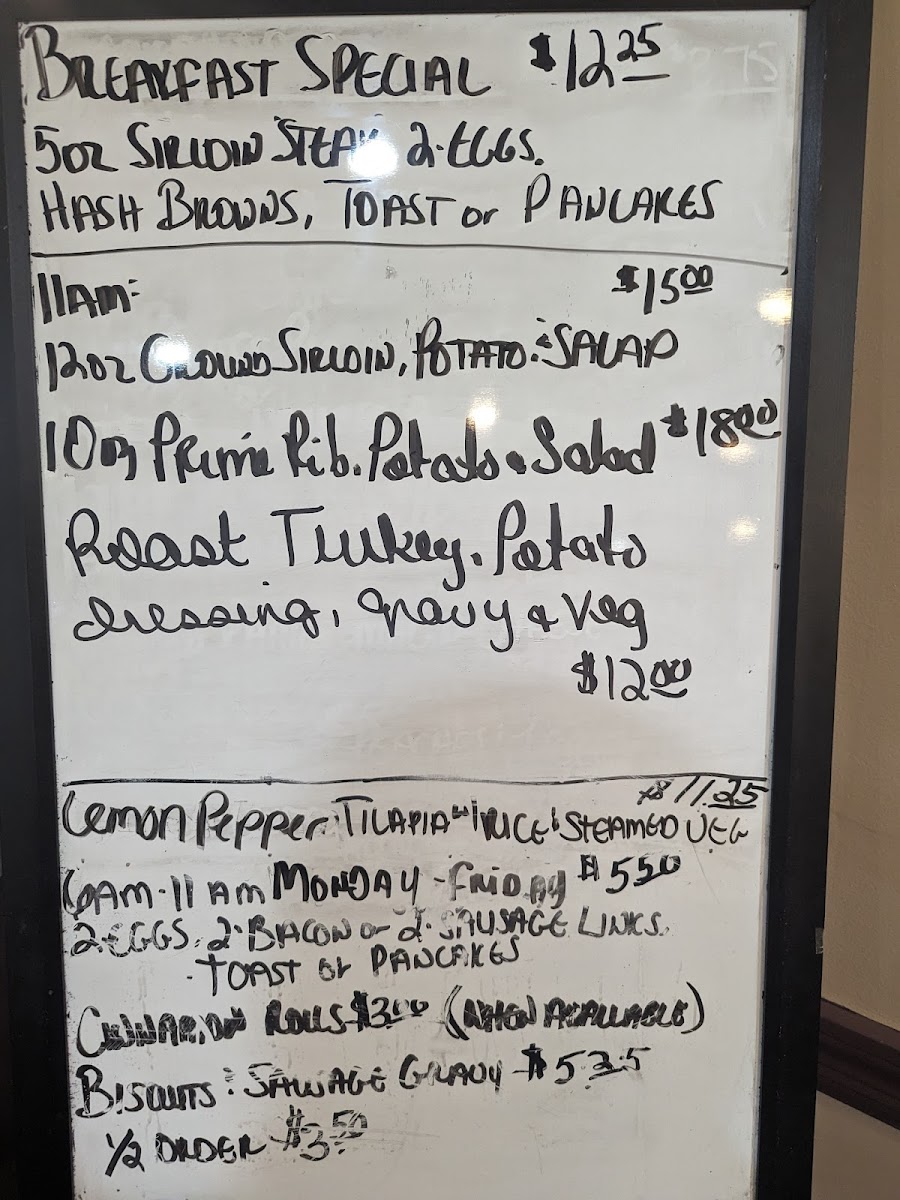 BREAKFAST SPECIAL $12.25
5oz SIRLOIN STEAK 2-EGGS.
HASH BROWNS, TOAST or PANCAKES
11AM: $15.00
12oz GROUND SIRLOIN, POTATO & SALAD
10oz Prime Rib. Potato & Salad $18.00
Roast Turkey. Potato
dressing, gravy & Veg
$12.00
$11.25
Lemon Pepper TILAPIA RICE & STEAMED VEG
6AM-11AM MONDAY-FRIDAY $5.50
2-EGGS, 2-BACON or 2-SAUSAGE LINKS.
TOAST or PANCAKES
CINNAMON ROLLS $3.00 (WHEN AVAILABLE)
BISCUITS & SAUSAGE GRAVY $5.25
1/2 ORDER $3.50